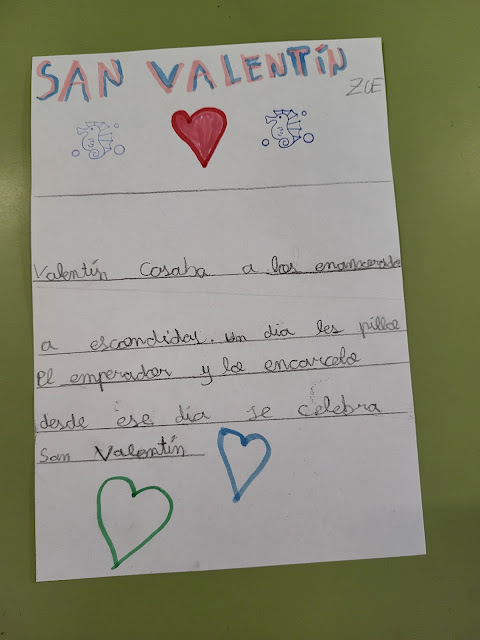 SAN VALENTÍN
ZOE
Valentín casaba a los enamorados
a escondidas. un día les pilloe
el emperador y lo encarcelo
desde ese día se celebra
San Valentín